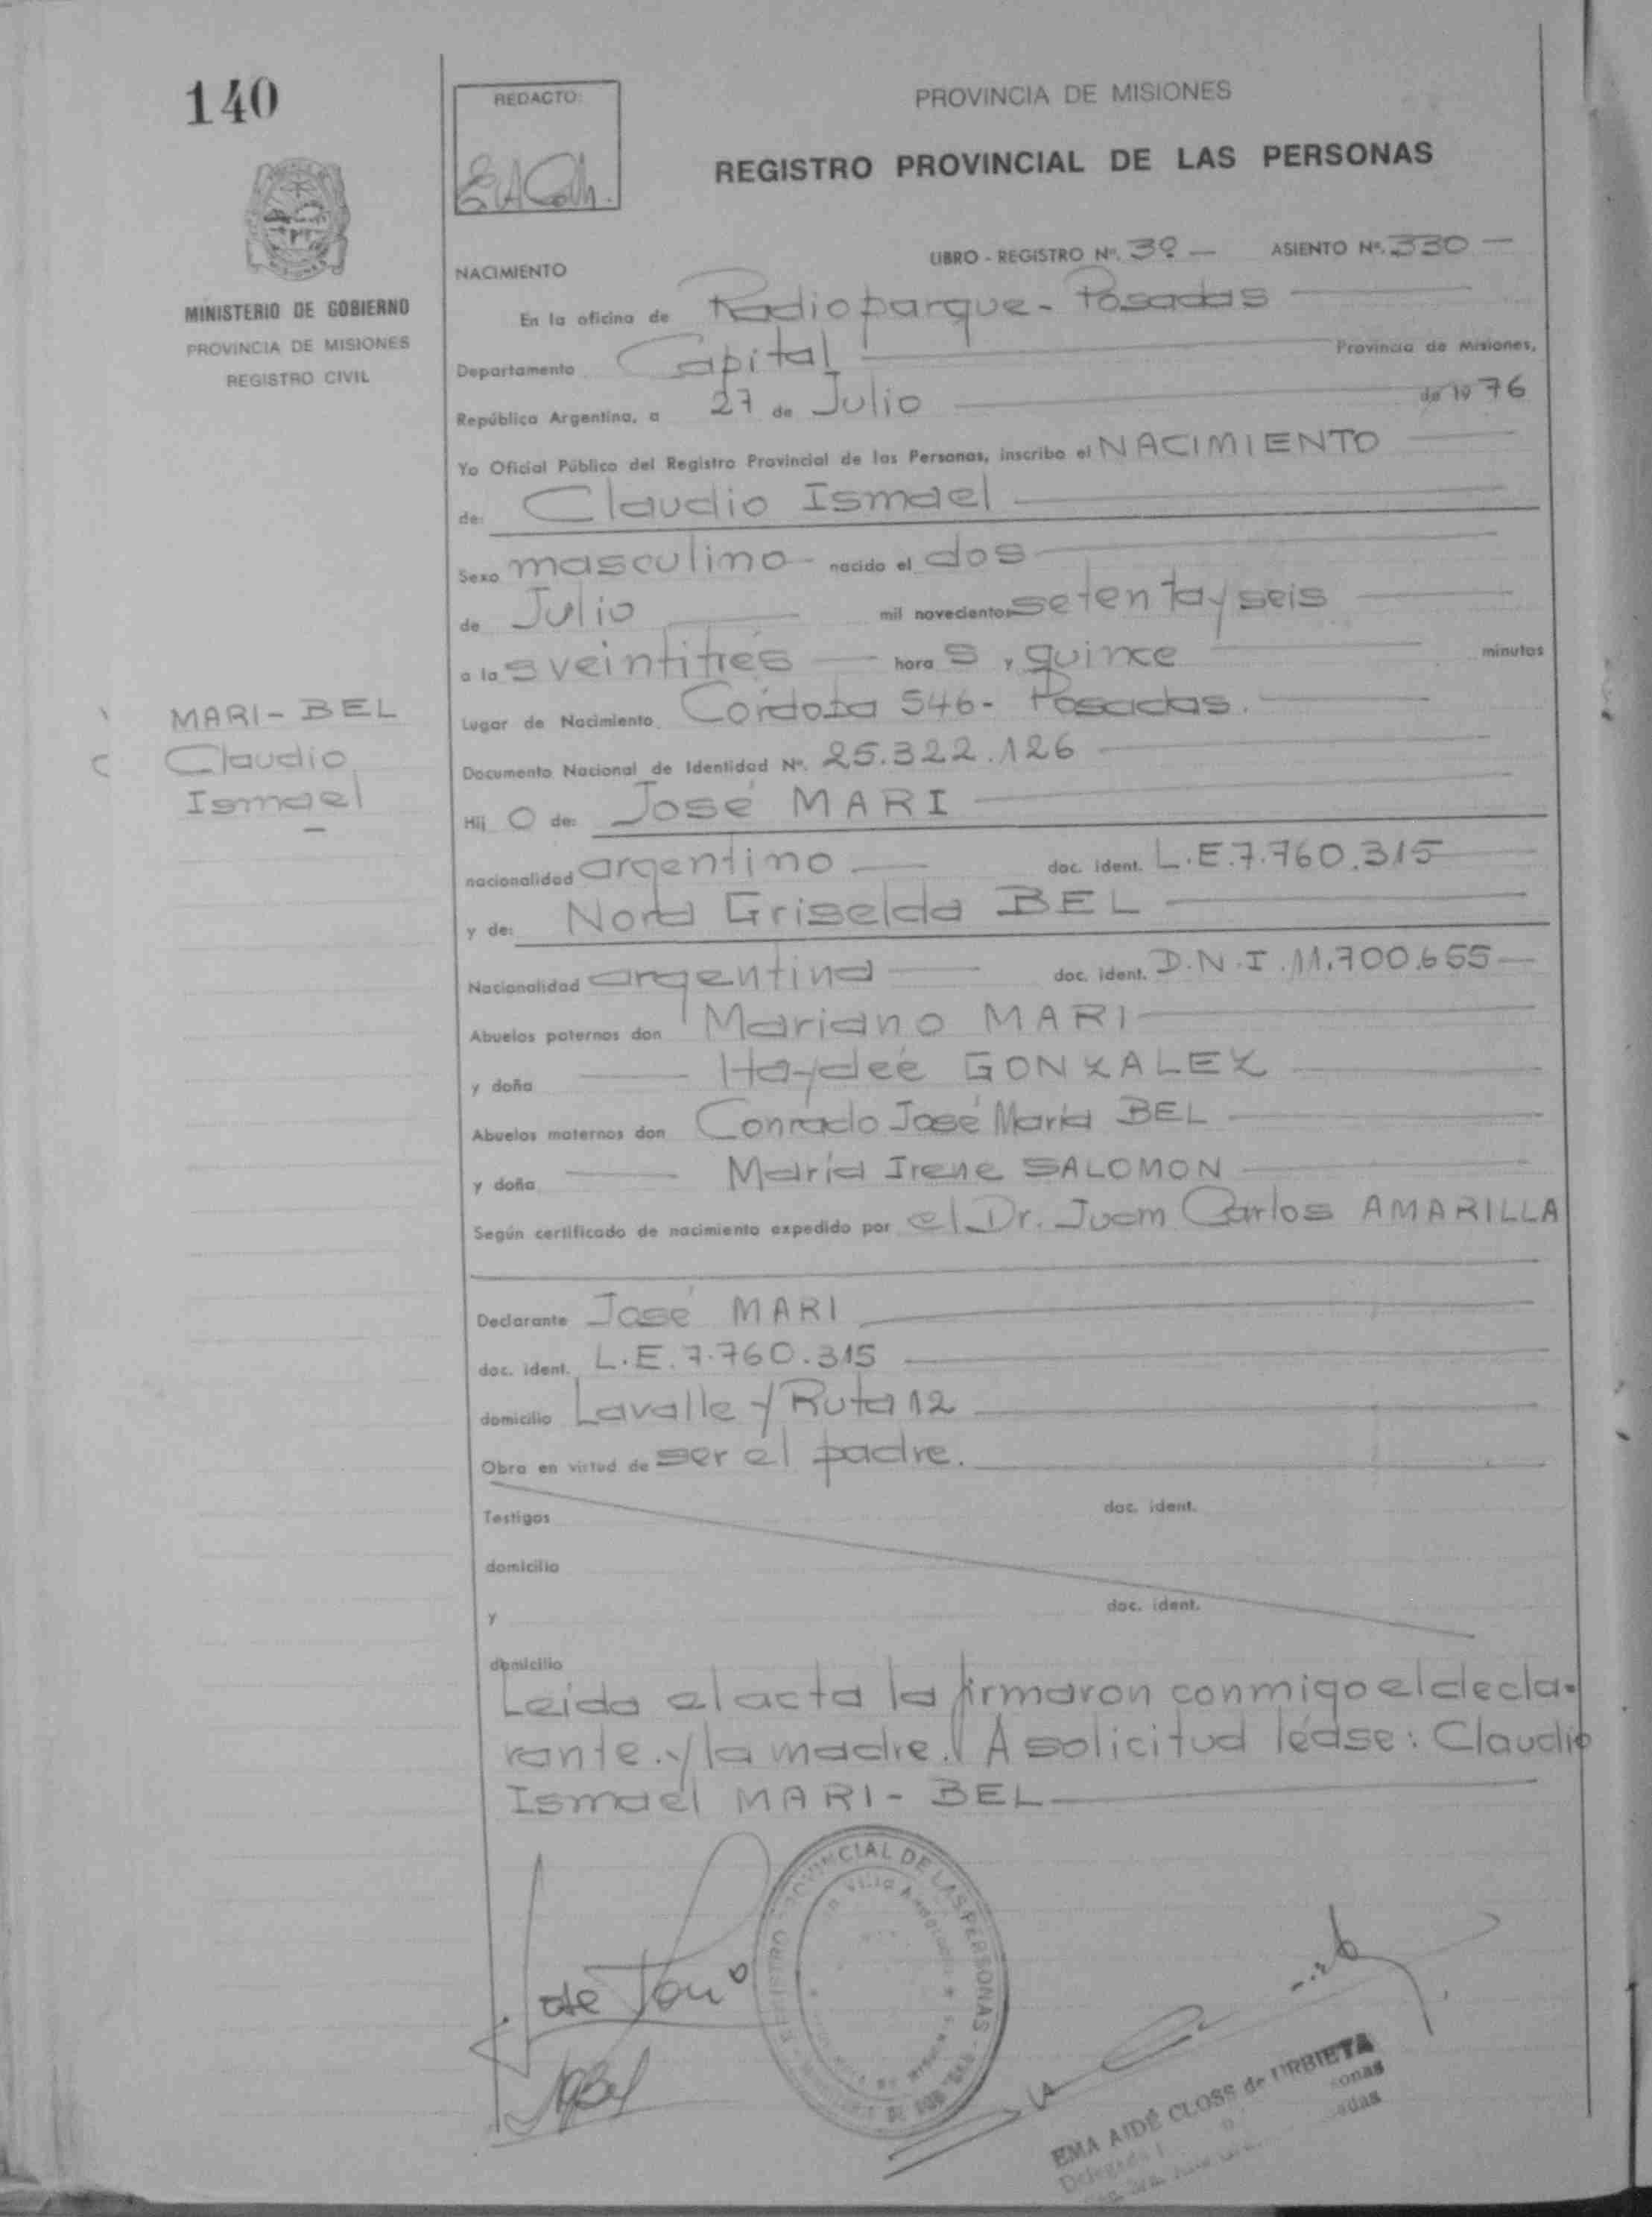 140
REDACTO:
PROVINCIA DE MISIONES
REGISTRO PROVINCIAL DE LAS PERSONAS
MINISTERIO DE GOBIERNO
PROVINCIA DE MISIONES
REGISTRO CIVIL
NACIMIENTO
LIBRO - REGISTRO Nº. 3º - ASIENTO Nº. 330 -
En la oficina de Radioparque - Posadas
Departamento Capital Provincia de Misiones,
República Argentina, a 27 de Julio de 19 76
Yo Oficial Público del Registro Provincial de las Personas, inscribo el NACIMIENTO
de: Claudio Ismael
Sexo masculino - nacido el dos
de Julio mil novecientos setenta y seis
a las veintitrés horas y quince minutos
Lugar de Nacimiento Córdoba 546 - Posadas.
Documento Nacional de Identidad Nº. 25.322.126
MARI - BEL
Claudio
Ismael
Hijo de: José MARI
nacionalidad argentino doc. ident. L.E. 7.760.315
y de: Nora Griselda BEL
Nacionalidad argentina doc. ident. D.N.I. 11.700.655
Abuelos paternos don Mariano MARI
y doña Haydeé GONZALEZ
Abuelos maternos don Conrado José María BEL
y doña María Irene SALOMON
Según certificado de nacimiento expedido por el Dr. Juan Carlos AMARILLA
Declarante José MARI
doc. ident. L.E. 7.760.315
domicilio Lavalle y Ruta 12
Obra en virtud de ser el padre.
Testigos doc. ident.
domicilio
y doc. ident.
domicilio
Leida el acta la firmaron conmigo el decla-
rante y la madre. A solicitud léase: Claudio
Ismael MARI - BEL
REGISTRO PROVINCIAL DE LAS PERSONAS
EMA AIDÉ CLOSS de URBIETA